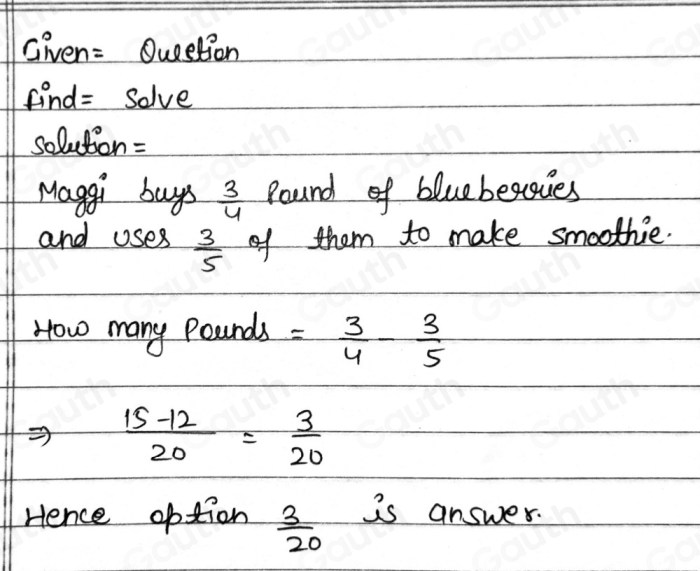 Given= Question
find= Solve
solution=
Maggi buys 3/4 Pound of blueberries
and uses 3/5 of them to make smoothie.
How many Pounds = 3/4 - 3/5
⇒ 15-12/20 = 3/20
Hence option 3/20 is answer.